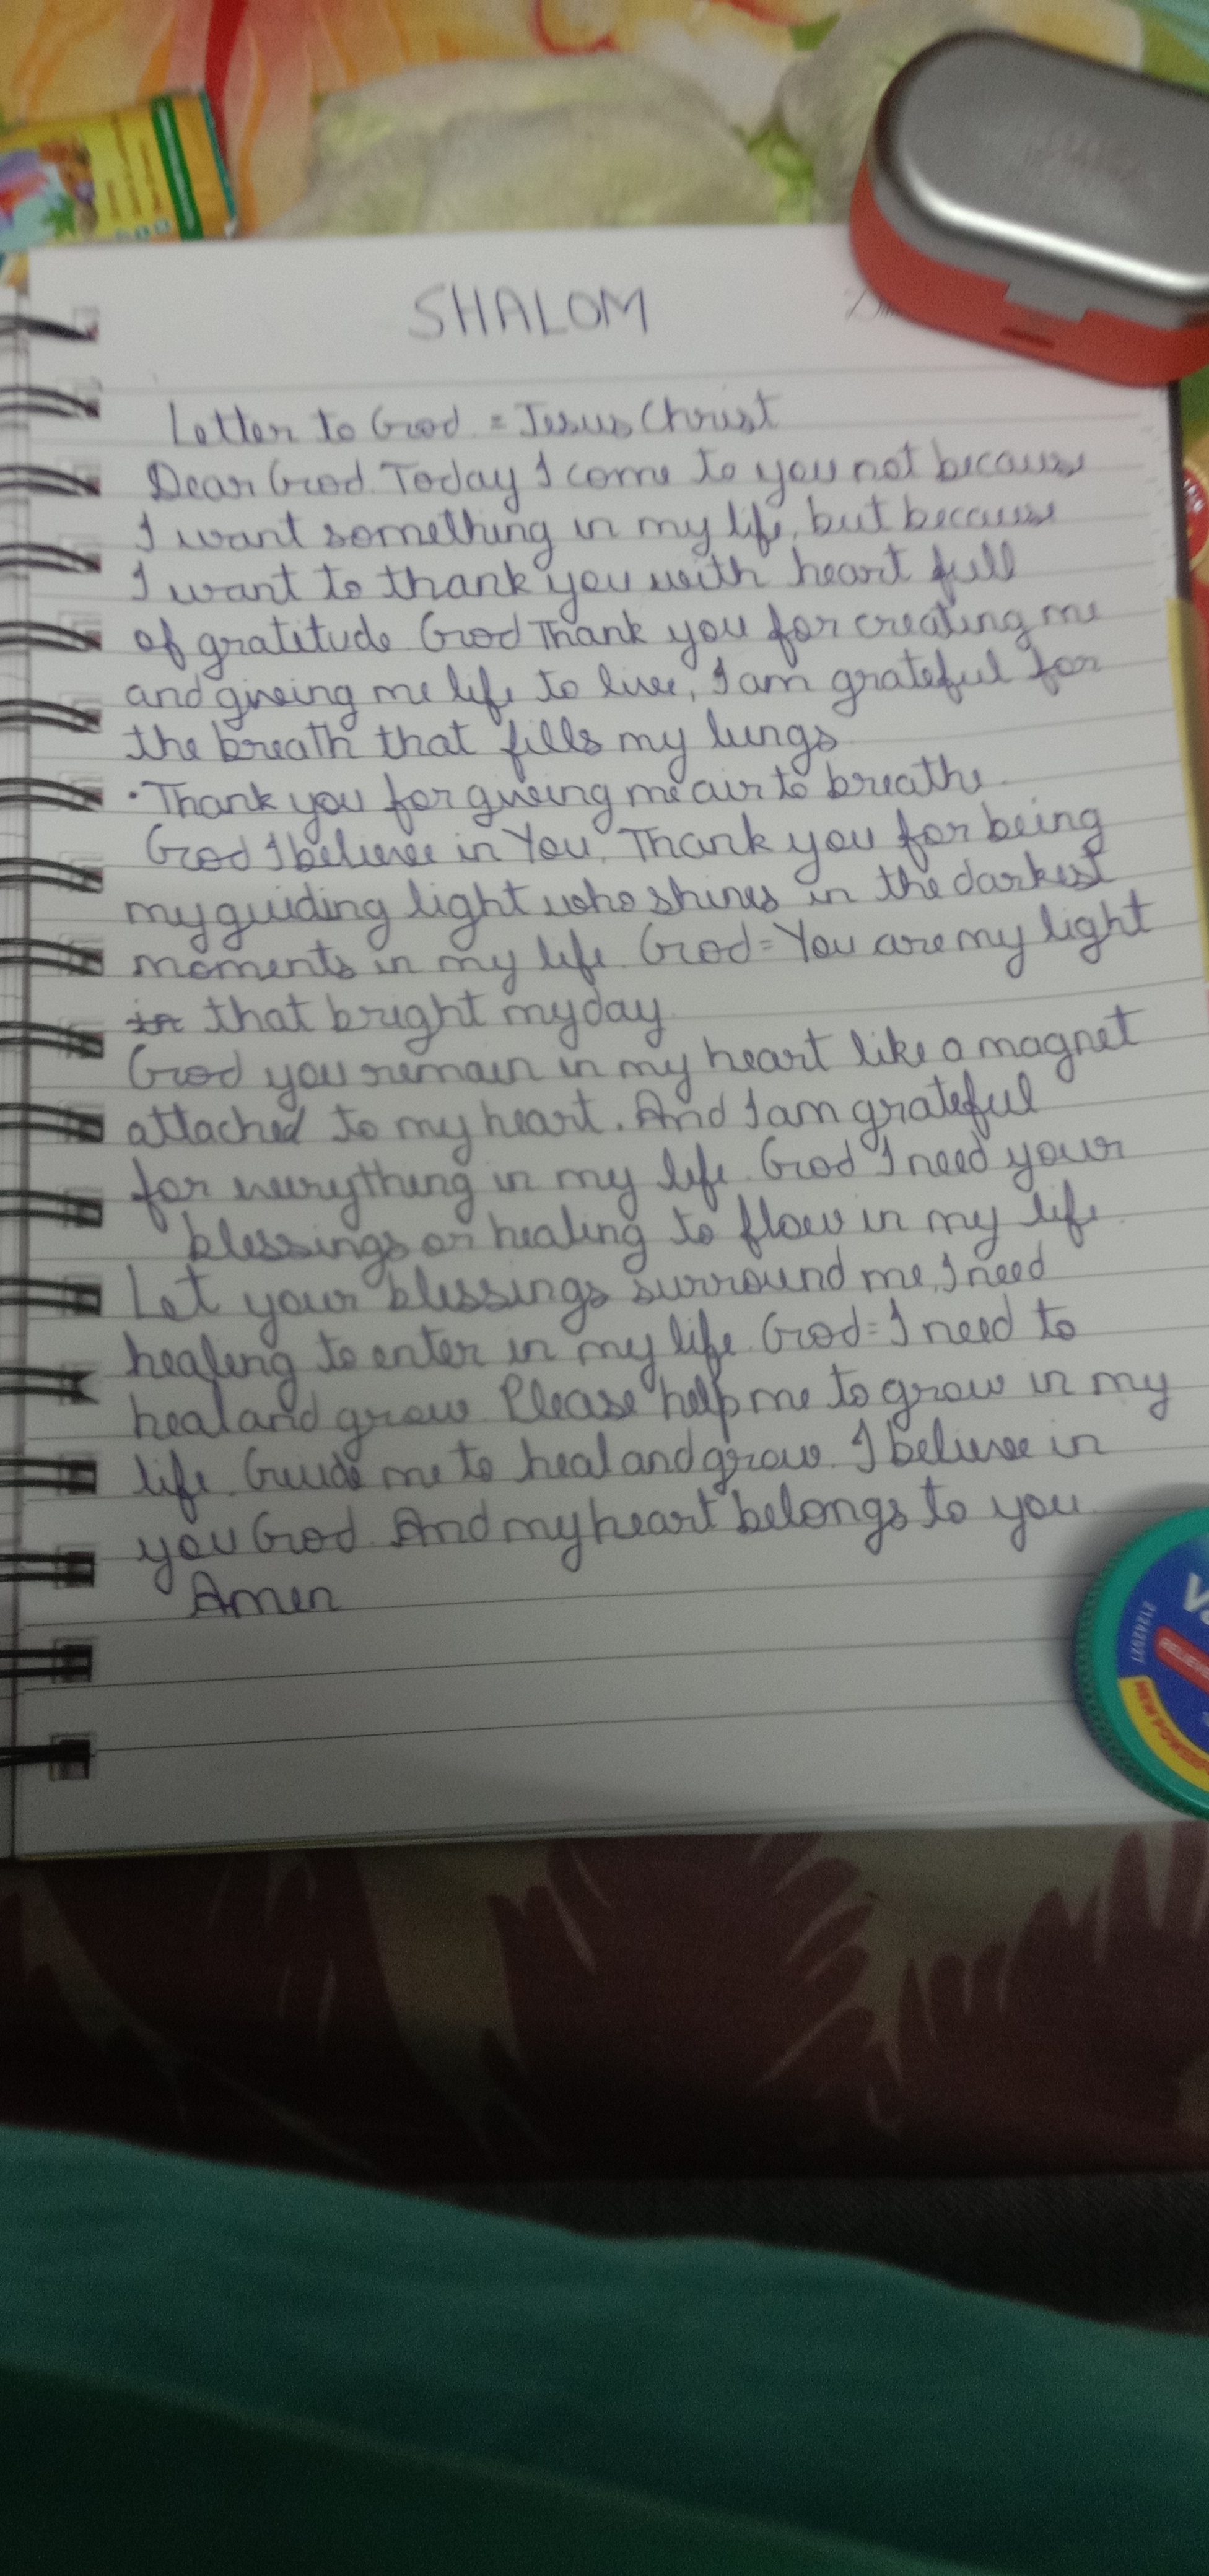 SHALOM
Letter to God = Jesus Christ
Dear God. Today I come to you not because
I want something in my life, but because
I want to thank you with heart full
of gratitude. God Thank you for creating me
and giveing me life to live, I am grateful for
the breath that fills my lungs
• Thank you for giveing me air to breathe.
God I believe in You. Thank you for being
my guiding light who shines in the darkest
moments in my life. God = You are my light
that bright my day
God you remain in my heart like a magnet
attached to my heart. And I am grateful
for everything in my life. God I need your
blessings or healing to flow in my life.
Let your blessings surround me, I need
healing to enter in my life. God = I need to
heal and grow. Please help me to grow in my
life. Guide me to heal and grow. I believe in
you God. And my heart belongs to you.
Amen
21242921